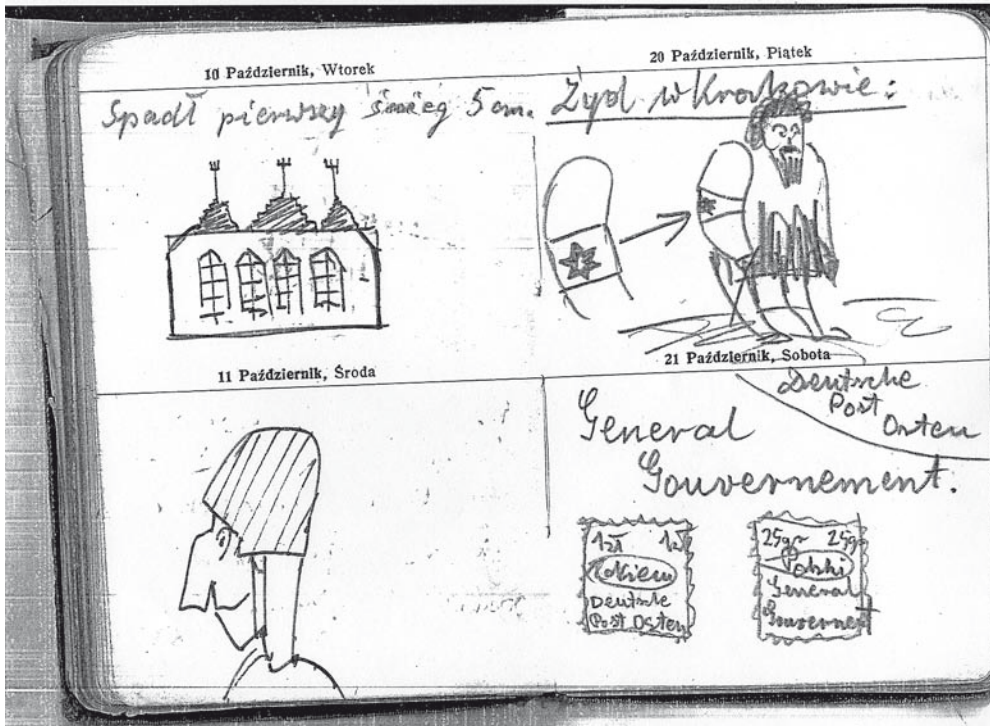 10 Październik, Wtorek
Spadł pierwszy śnieg 5 cm.
11 Październik, Środa
20 Październik, Piątek
Żyd w Krakowie:
21 Październik, Sobota
Deutsche
Post
Osten
General
Gouvernement.
1zł 1zł
Deutsche
Post Osten
25gr 25gr
Polski
General
Gouvernement